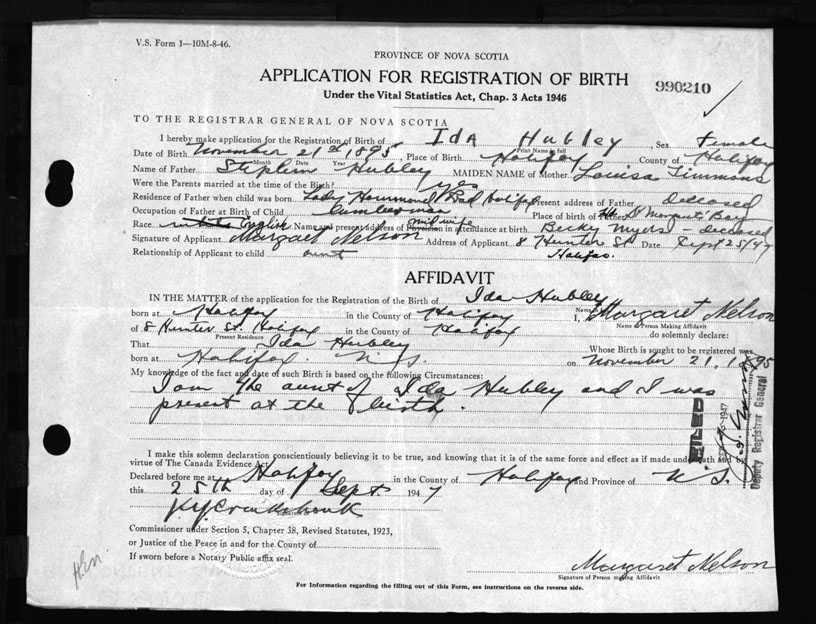 V.S. Form 1—10M-8-46.
PROVINCE OF NOVA SCOTIA
APPLICATION FOR REGISTRATION OF BIRTH
990210
Under the Vital Statistics Act, Chap. 3 Acts 1946
TO THE REGISTRAR GENERAL OF NOVA SCOTIA
I hereby make application for the Registration of Birth of Ida Hubley Sex Female
Print Name in full
Date of Birth November 21st 1895 Place of Birth Halifax County of Halifax
Month Date Year
Name of Father Stephen Hubley MAIDEN NAME of Mother Louisa Timmons
Were the Parents married at the time of the Birth? yes
Residence of Father when child was born Lady Hammond Rd Halifax Present address of Father deceased
Occupation of Father at Birth of Child Lumberman Place of birth of St Margaret's Bay
Race white English Name and present address of Physician midwife in attendance at birth Becky Myers - deceased
Signature of Applicant Margaret Nelson Address of Applicant 8 Hunter St Date Sept 25/47
Halifax.
Relationship of Applicant to child aunt
AFFIDAVIT
IN THE MATTER of the application for the Registration of the Birth of Ida Hubley
born at Halifax in the County of Halifax I, Margaret Nelson
Name of Person Making Affidavit
of 8 Hunter St. Halifax in the County of Halifax do solemnly declare:
Present Residence
That Ida Hubley Whose Birth is sought to be registered was
born at Halifax N.S. on November 21, 1895
My knowledge of the fact and date of such Birth is based on the following Circumstances:
I am the aunt of Ida Hubley and I was
present at the birth.
FILED
1947
Deputy Registrar General
I make this solemn declaration conscientiously believing it to be true, and knowing that it is of the same force and effect as if made under oath and by
virtue of The Canada Evidence Act.
Declared before me at Halifax in the County of Halifax and Province of N.S.
this 25th day of Sept 1947
Commissioner under Section 5, Chapter 38, Revised Statutes, 1923,
or Justice of the Peace in and for the County of
If sworn before a Notary Public affix seal.
Margaret Nelson
Signature of Person making Affidavit
For Information regarding the filling out of this Form, see instructions on the reverse side.